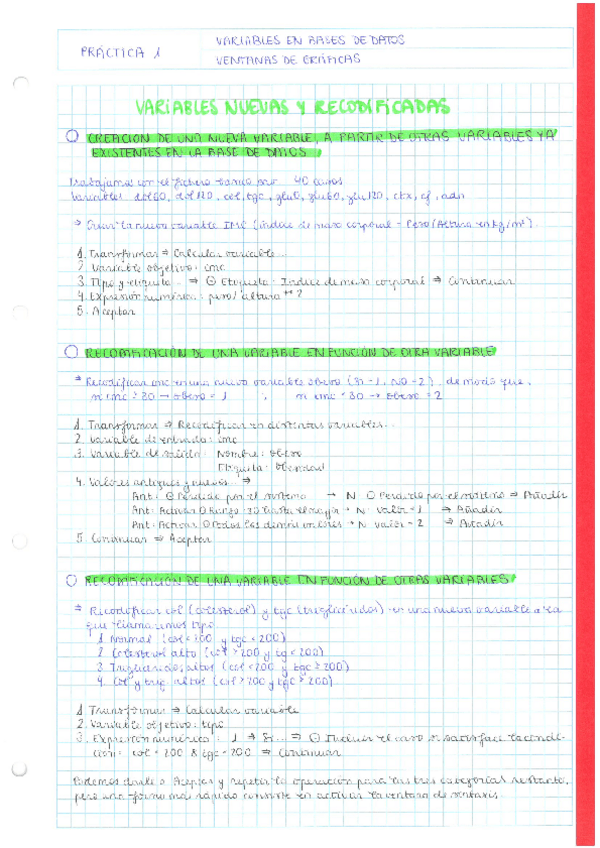 PRÁCTICA 1
VARIABLES EN BASES DE DATOS
VENTANAS DE GRÁFICAS
VARIABLES NUEVAS Y RECODIFICADAS
CREACIÓN DE UNA NUEVA VARIABLE, A PARTIR DE OTRAS VARIABLES YA
EXISTENTES EN LA BASE DE DATOS
Trabajamos con el fichero por 40 casos
Variables col, tgc, glu0, glu60, glu120, ctx, cf, adn
⇒ Crear la nueva variable IMC (índice de masa corporal = Peso/Altura en kg/m²).
1. Transformar ⇒ Calcular variable...
2. Variable objetivo: imc
3. Tipo y etiqueta ⇒ ⊙ Etiqueta: Indice de masa corporal ⇒ Continuar
4. Expresión numérica: peso/altura**2
5. Aceptar
RECODIFICACIÓN DE UNA VARIABLE EN FUNCIÓN DE OTRA VARIABLE
⇒ Recodificar imc en una nueva variable obeso (Si-1, NO-2), de modo que,
si imc ≥ 30 → obeso = 1 , si imc < 30 → obeso = 2
1. Transformar ⇒ Recodificar en distintas variables...
2. Variable de entrada: imc
3. Variable de salida: Nombre: obeso
Etiqueta: Obesidad
4. Valores antiguos y nuevos ⇒
Ant: ⊙ Perdido por el sistema → N: ⊙ Perdido por el sistema ⇒ Añadir
Ant: Activar ⊙ Rango: 30 hasta el mayor → N: valor = 1 ⇒ Añadir
Ant: Activar ⊙ Todos los demás valores → N: valor = 2 ⇒ Añadir
5. Continuar ⇒ Aceptar
RECODIFICACIÓN DE UNA VARIABLE EN FUNCIÓN DE OTRAS VARIABLES
⇒ Recodificar col (colesterol) y tgc (triglicéridos) en una nueva variable a la
que llamaremos tipo
1. Normal (col < 200 y tgc < 200)
2. Colesterol alto (col > 200 y tg < 200)
3. Triglicéridos altos (col < 200 y tgc ≥ 200)
4. Col y trig altos (col > 200 y tgc > 200)
1. Transformar ⇒ Calcular variable
2. Variable objetivo: tipo
3. Expresión numérica: 1 ⇒ Si... ⇒ ⊙ Incluir el caso si satisface la condi-
ción: col < 200 & tgc < 200 ⇒ Continuar
Podemos darle a Aceptar y repetir la operación para las tres categorías restantes,
pero una forma más rápida consiste en activar la ventana de sintaxis.